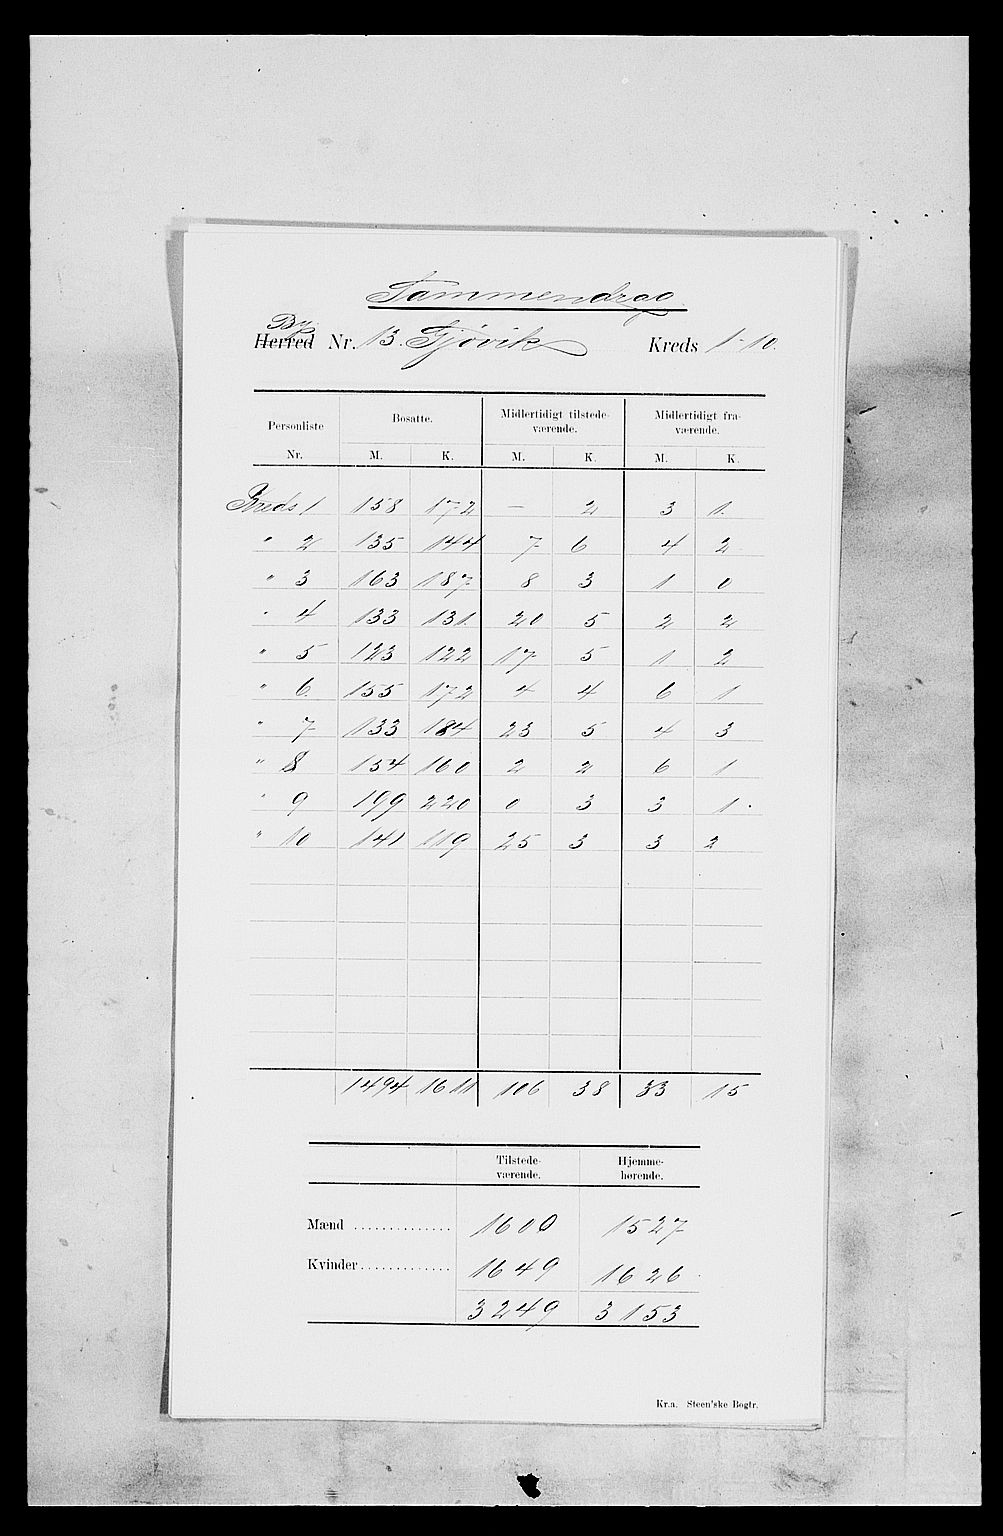 Sammendrag
By
Herred Nr. 13. Gjövik Kreds 1-10.
Personliste Bosatte. Midlertidigt tilstede- Midlertidigt fra-
værende. værende.
Nr. M. K. M. K. M. K.
Kreds 1 158 172 — 2 3 1.
" 2 135 144 7 6 4 2
" 3 163 187 8 3 1 0
" 4 133 131. 20 5 2 2
" 5 123 122 17 5 1 2
" 6. 155 172 4 4 6 1
" 7 133 184 23 5 4 3
" 8 154 160 2 2 6 1
" 9 199 220 0 3 3 1.
" 10 141 119 25 3 3 2
1494 1611 106 38 33 15
Tilstede- Hjemme-
værende. hørende.
Mænd .............. 1600 1527
Kvinder ............. 1649 1626
3249 3153
Kr.a. Steen'ske Bogtr.